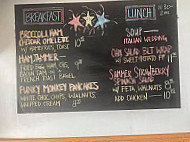 BREAKFAST
BROCCOLI HAM
CHEDDAR OMELETTE
W/ HOMEFRIES TOAST 10
HAM JAMMER
FRIED EGG, HAM, CHS,
ON
FRENCH TOAST BAGEL
FUNKY MONKEY PANCAKES
WHITE CHOC CHIPS, WALNUTS,
WHIPPED CREAM 9
LUNCH
SOUP
ITALIAN WEDDING
BLT WRAP
W/ SWEET POTATO FF 11
SUMMER STRAWBERRY
SPINACH SALAD
W/ FETA, WALNUTS 10
ADD CHICKEN